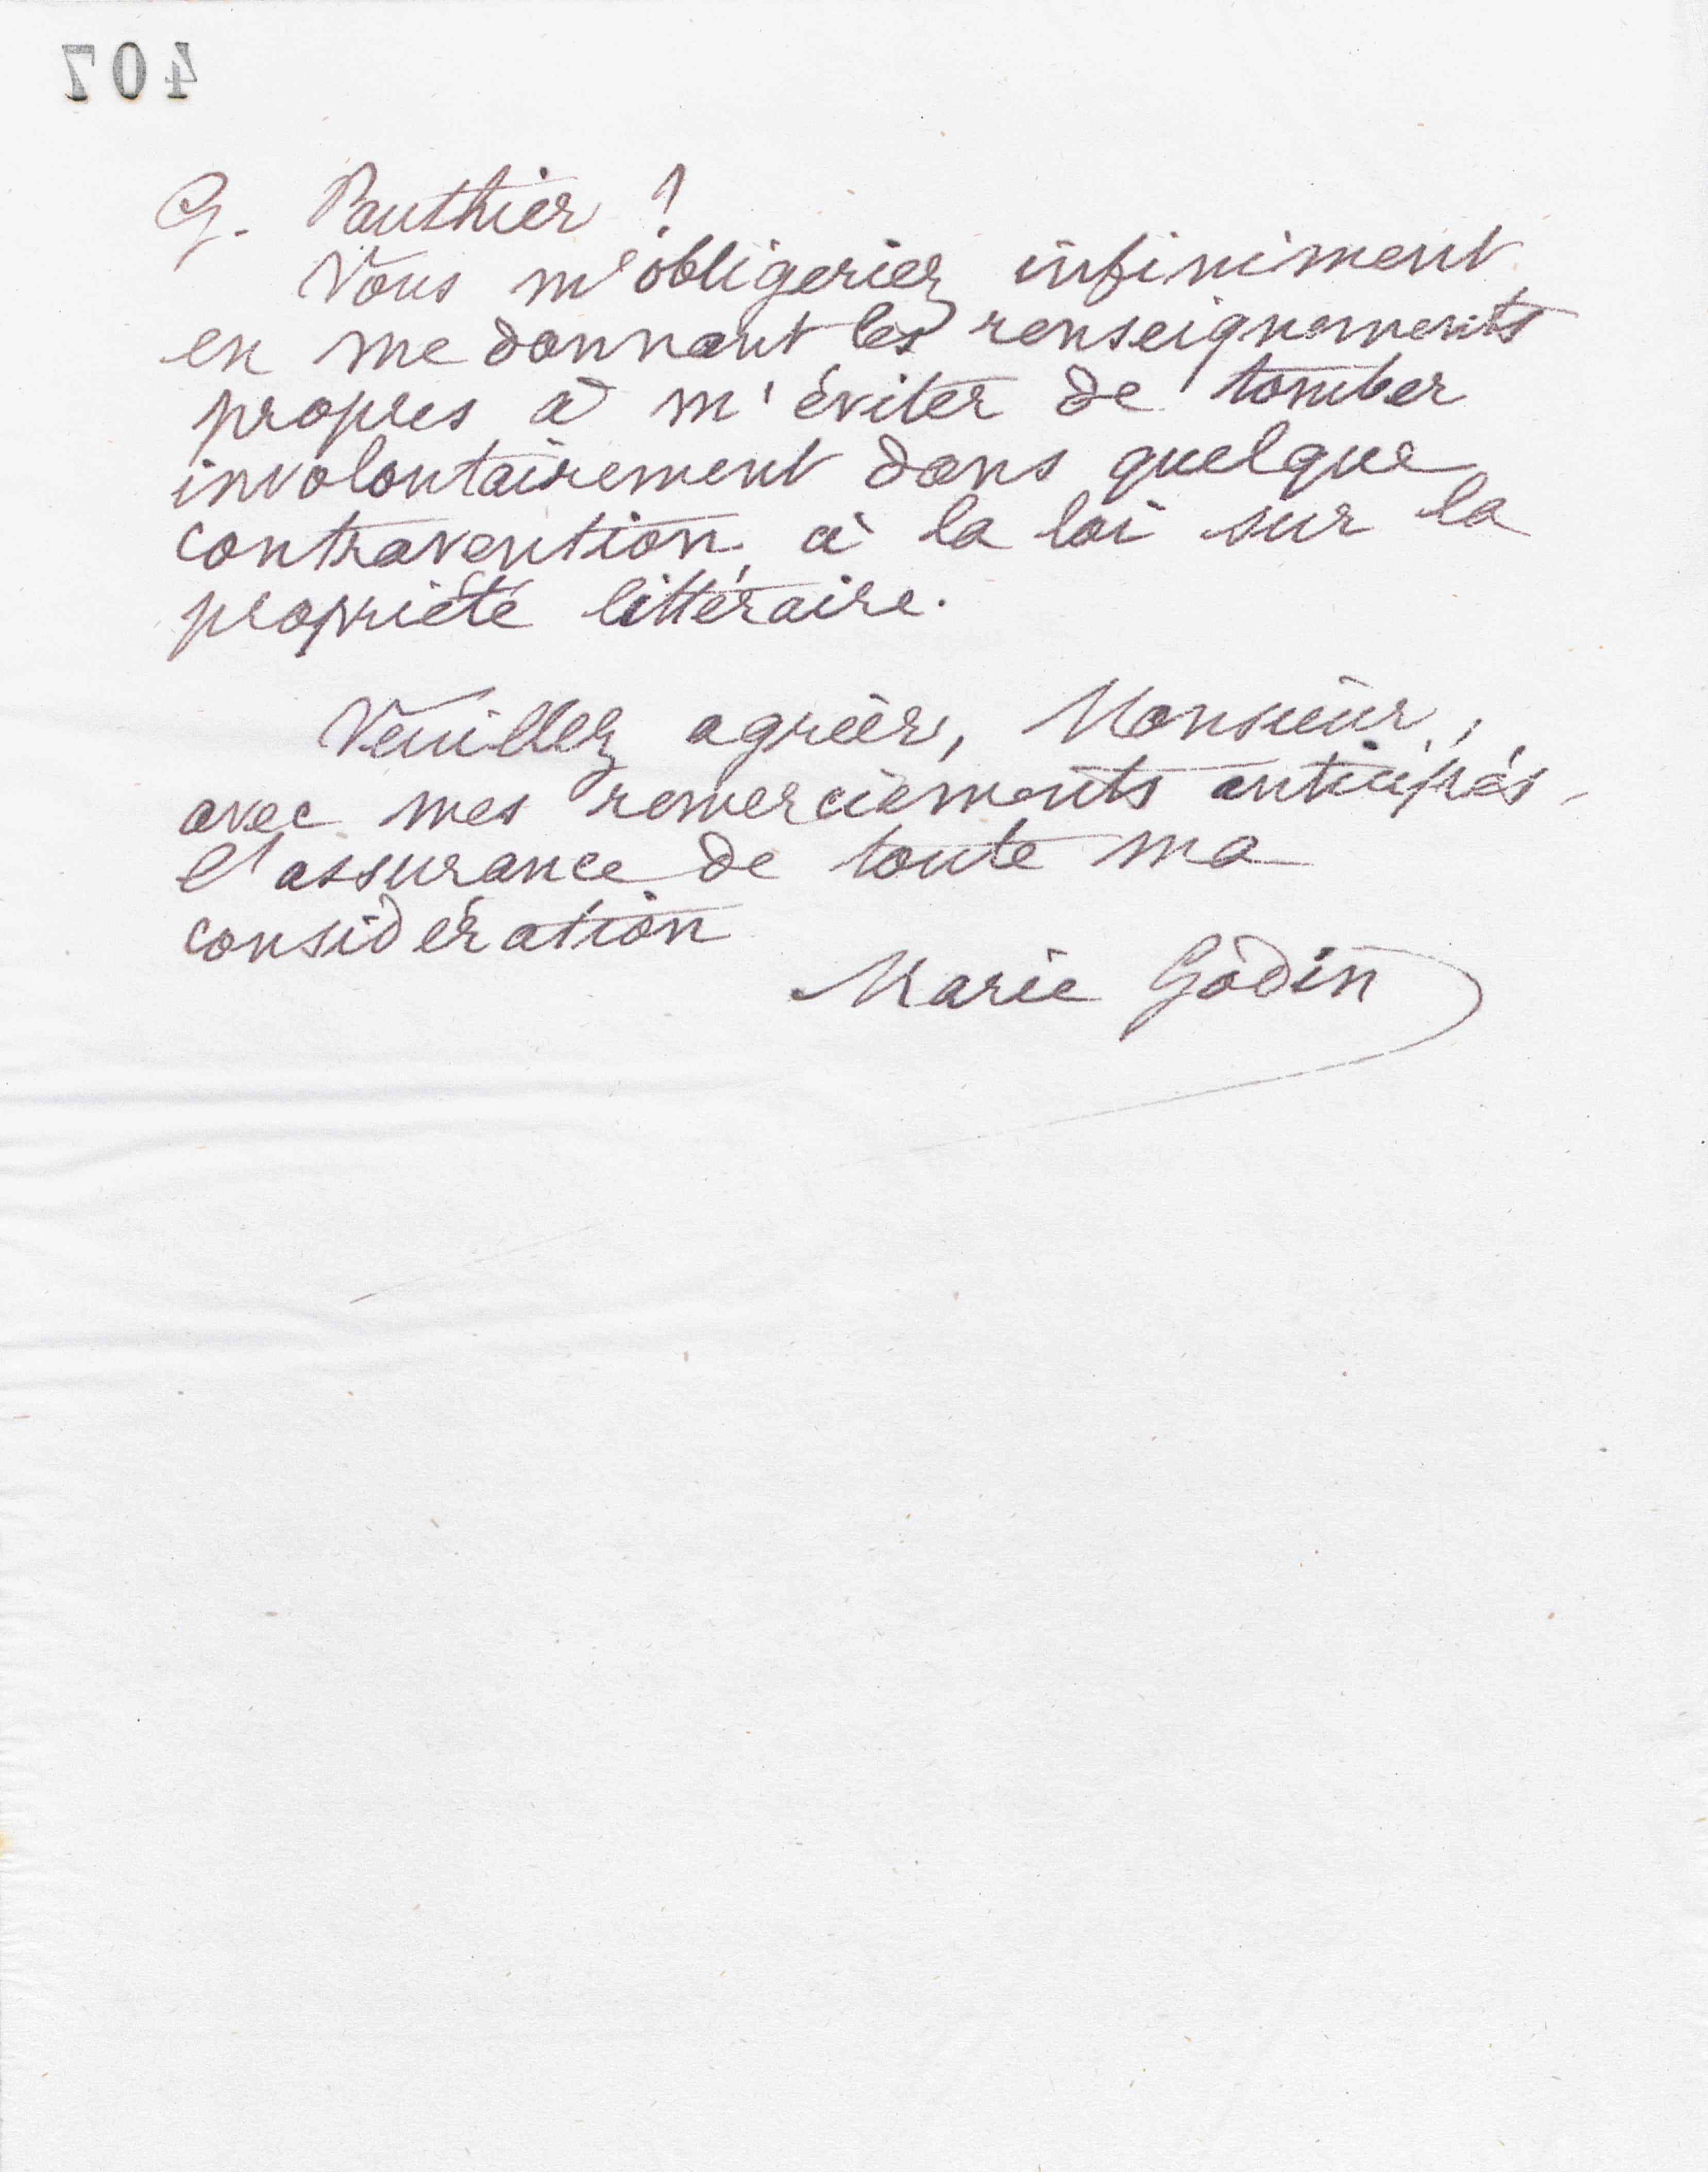 407
G. Pauthier ?
Vous m'obligeriez infiniment
en me donnant les renseignements
propres à m'éviter de tomber
involontairement dans quelque
contravention à la loi sur la
propriété littéraire.
Veuillez agréer, Monsieur,
avec mes remerciements anticipés,
l'assurance de toute ma
considération
Marie Godin